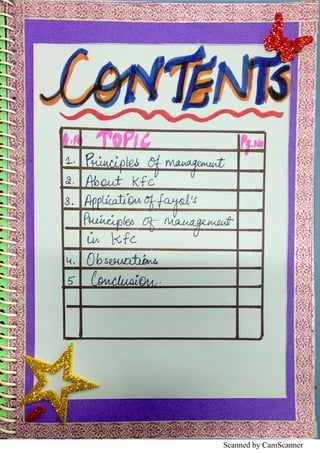 CONTENTS
S.N TOPIC Pg.No
1. Principles of management
2. About kfc
3. Application of fayol's
Principles of management
in kfc
4. Observations
5 Conclusion.
Scanned by CamScanner